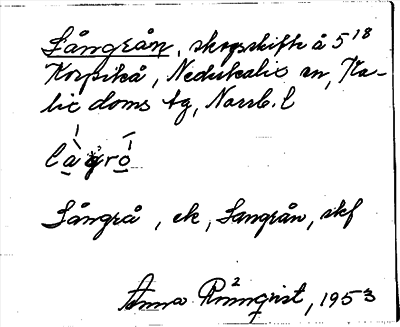 Långrån, skogsskifte å 5¹⁸
Korpikå, Nederkalix sn, Ka-
lix doms tg, Norrb. l
Långrå, ek, Långrån, skf
Anna Rönnqvist, 1953